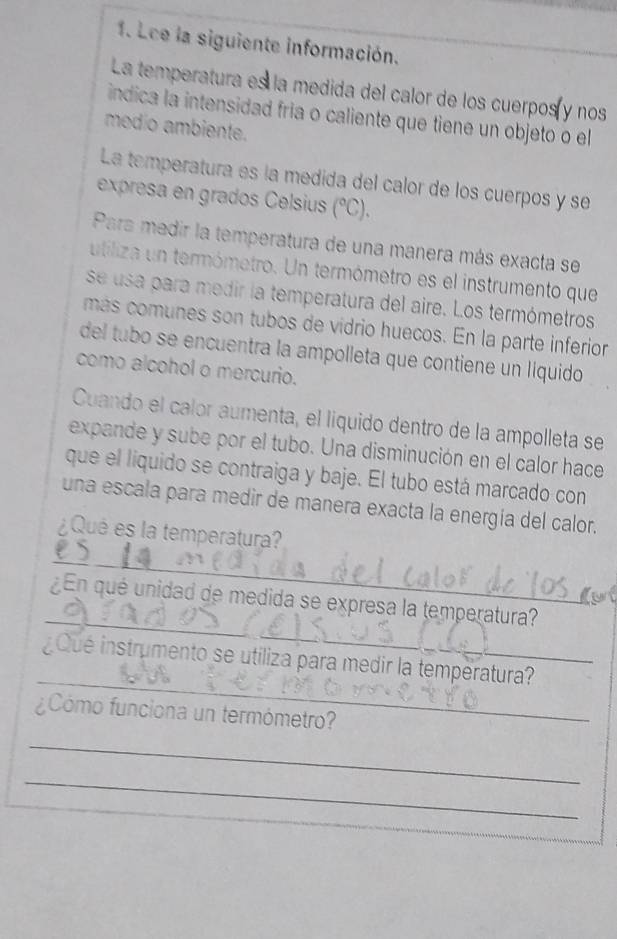 1. Lee la siguiente información.
La temperatura es la medida del calor de los cuerpos y nos
indica la intensidad fría o caliente que tiene un objeto o el
medio ambiente.
La temperatura es la medida del calor de los cuerpos y se
expresa en grados Celsius (ºC).
Para medir la temperatura de una manera más exacta se
utiliza un termómetro. Un termómetro es el instrumento que
se usa para medir la temperatura del aire. Los termómetros
más comunes son tubos de vidrio huecos. En la parte inferior
del tubo se encuentra la ampolleta que contiene un líquido
como alcohol o mercurio.
Cuando el calor aumenta, el líquido dentro de la ampolleta se
expande y sube por el tubo. Una disminución en el calor hace
que el líquido se contraiga y baje. El tubo está marcado con
una escala para medir de manera exacta la energía del calor.
¿Qué es la temperatura?
es la medida del calor de los
¿En qué unidad de medida se expresa la temperatura?
grados Celsius
¿Qué instrumento se utiliza para medir la temperatura?
un termometro
¿Cómo funciona un termómetro?